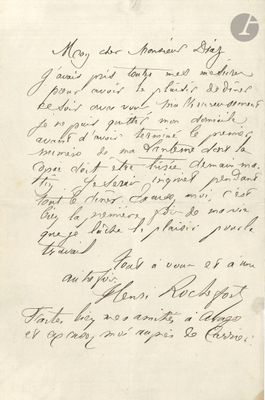 Mon cher Monsieur Diaz
j'avais pris toutes mes mesures
pour avoir le plaisir de diner
ce soir avec vous. Malheureusement
je ne puis quitter mon domicile
avant d'avoir terminé le premier
numéro de ma Lanterne dont la
copie doit être livrée demain ma-
tin. Je serais inquiet pendant
tout le diner. Excusez moi, c'est
bien la première fois de ma vie
que je lâche le plaisir pour le
travail
Tout à vous et à une
autre fois
Henri Rochefort
Faites bien mes amitiés à
et excusez moi auprès de